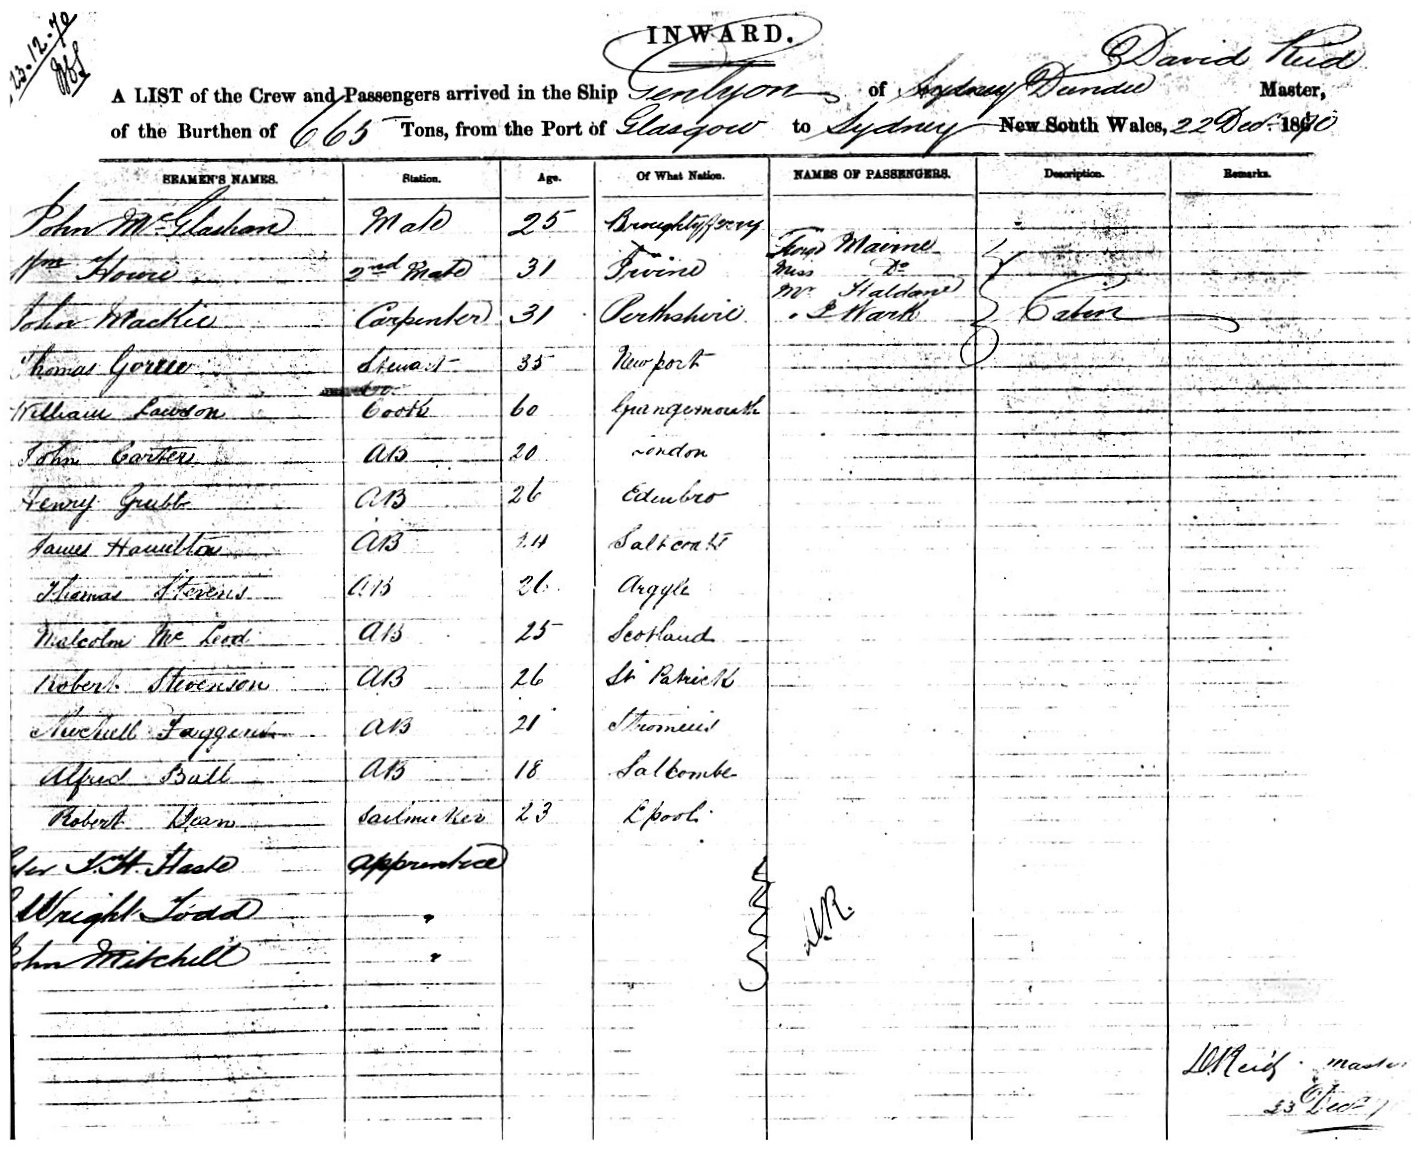 23.12.70
INWARD.
A LIST of the Crew and Passengers arrived in the Ship Glenlyon of Sydney Dundee David Reid Master,
of the Burthen of 665 Tons, from the Port of Glasgow to Sydney New South Wales, 22 Decr. 1870
SEAMEN'S NAMES. Station. Age. Of What Nation. NAMES OF PASSENGERS. Description. Remarks.
John McGlashan Mate 25 Broughty ferry
Mairne
Wm Howie 2nd Mate 31 Irvine Miss Do
Mr Haldane
John Mackie Carpenter 31 Perthshire " Wark Cabin
Thomas Steward 35 Newport
William Lawson Cook 60 Grangemouth
John Carter AB 20 London
Henry Grubb AB 26 Edinbro
James Hamilton AB 24 Saltcoats
Thomas Stevens AB 26 Argyle
Malcolm McLeod AB 25 Scotland
Robert Stevenson AB 26 St Patrick
AB 21
Alfred Ball AB 18 Salcombe
Robert Dean Sailmaker 23 Lpool
Haste apprentice
Wright Todd "
D.R.
John Mitchell "
D Reid master
23 Decr